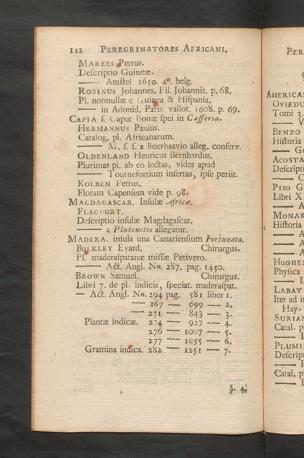 112 PEREGRINATORES AFRICANI.
MAREES Petrus.
Descriptio Guineæ.
—— Amstel 1650. 4º. belg.
ROBINUS Johannes, Fil. Johannis, p. 68.
Pl. nonnullæ e Guinea & Hispania.
—— in Adonid. Paris. vallot. 1608. p. 69.
CAPIA s. Caput Bonæ spei in Cafferia.
HERMANNUS Paulus.
Catalog. pl. Africanarum.
—— M. s. s. a Boerhavio alleg. conserv.
OLDENLAND Henricus Bernhardus.
Plurimas pl. ab eo lectas, vides apud
—— Tournefortium insertas, ipse periit.
KOLBEN Petrus.
Floram Capensem vide p. 98.
MAGDAGASCAR. Insulæ Africæ.
FLACOURT.
Descriptio insulæ Magdagascar.
—— a Pluknetio allegatur.
MADERA. insula una Canariensium Fortunata.
BULKLEY Evard, Chirurgus.
Pl. maderaspatanæ missæ Petivero.
—— Act. Angl. No. 287. pag. 1450.
BROWN Samuel. Chirurgus.
Libri 7. de pl. indicis, speciat. maderaspat.
— Act. Angl. No. 294 pag. 581 liber 1.
— 267 — 699 — 2.
— 271 — 843 — 3.
Plantæ indicæ. 274 — 927 — 4.
276 — 1007 — 5.
277 — 1055 — 6.
Gramina indica. 282 — 1251 — 7.
§. 4.
PER
AMERICA
OVIEDU
Tomi 3.
BENZO
Historia
— Ge
ACOSTA
Descripti
— C
PISO G
Libri X
— A
MONAR
Historia
— A
HUGHE
Physica
— L
LABAT
Iter ad i
Hay
SURIAN
Catal. p
— I
PLUMI
Descrip
— Pa
Catal. pl